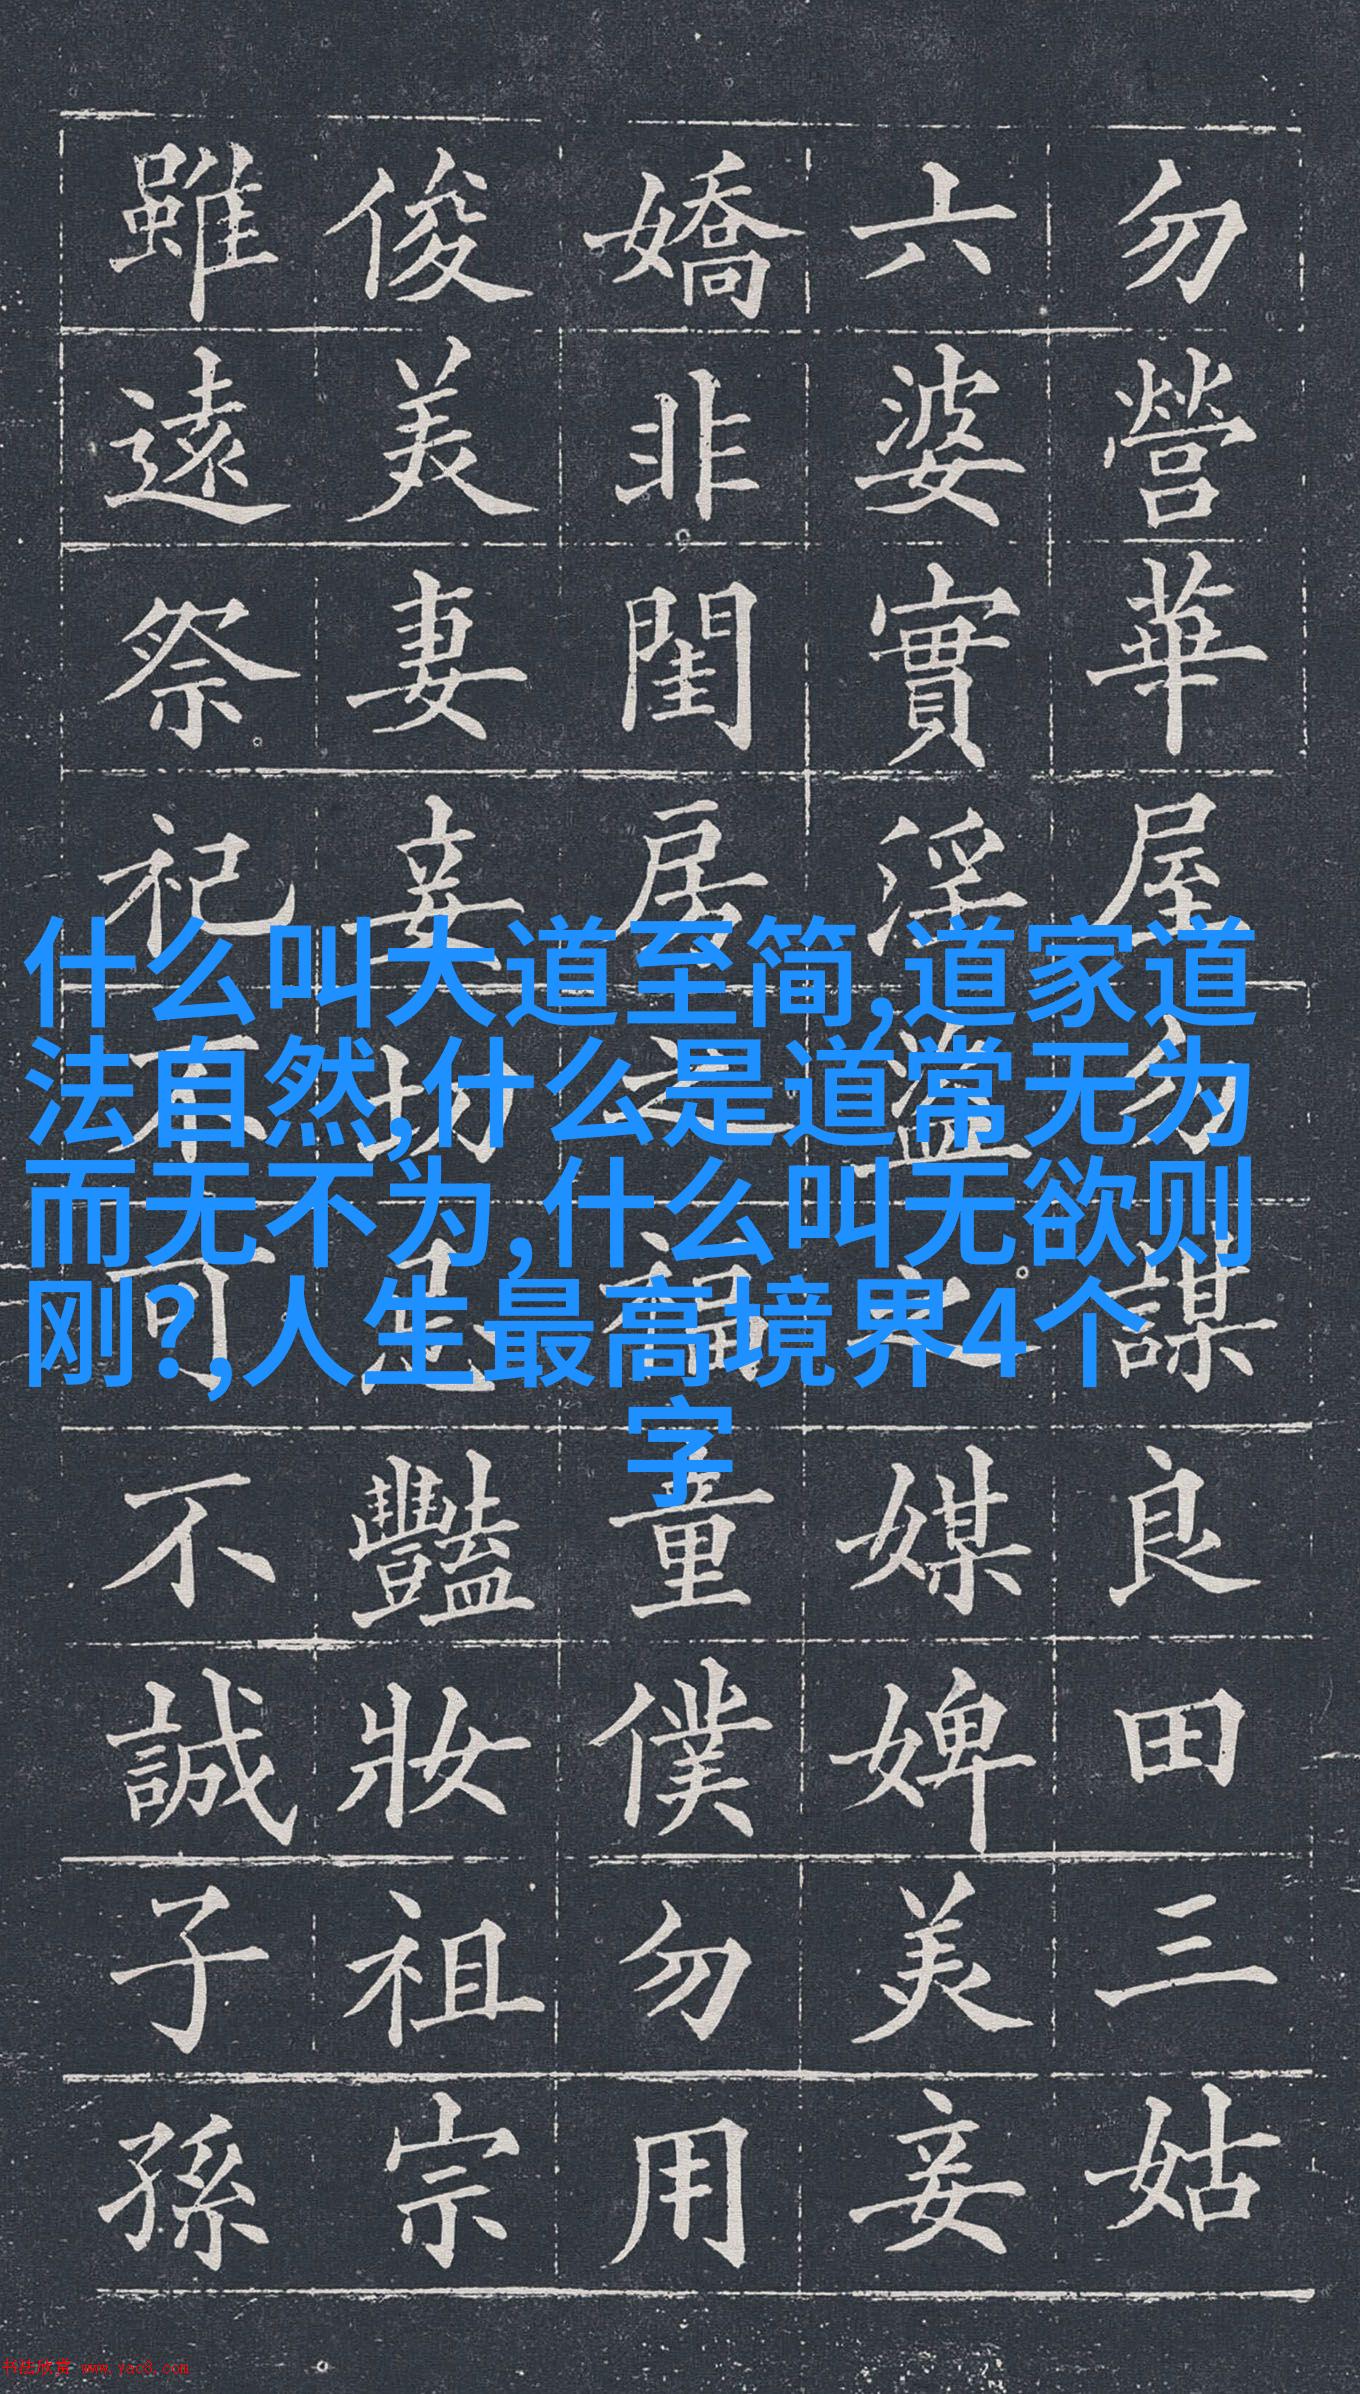 勿營華屋勿謀良田三姑
六婆實淫盜之媒婢美妾
嬌非閨房之福童僕勿用
俊美妻妾切忌豔妝祖宗
雖遠祭祀不可不誠子孫
什么叫大道至简,道家道
法自然,什么是道常无为
而无不为,什么叫无欲则
刚?,人生最高境界4个
字
书法欣赏 www.yac8.com